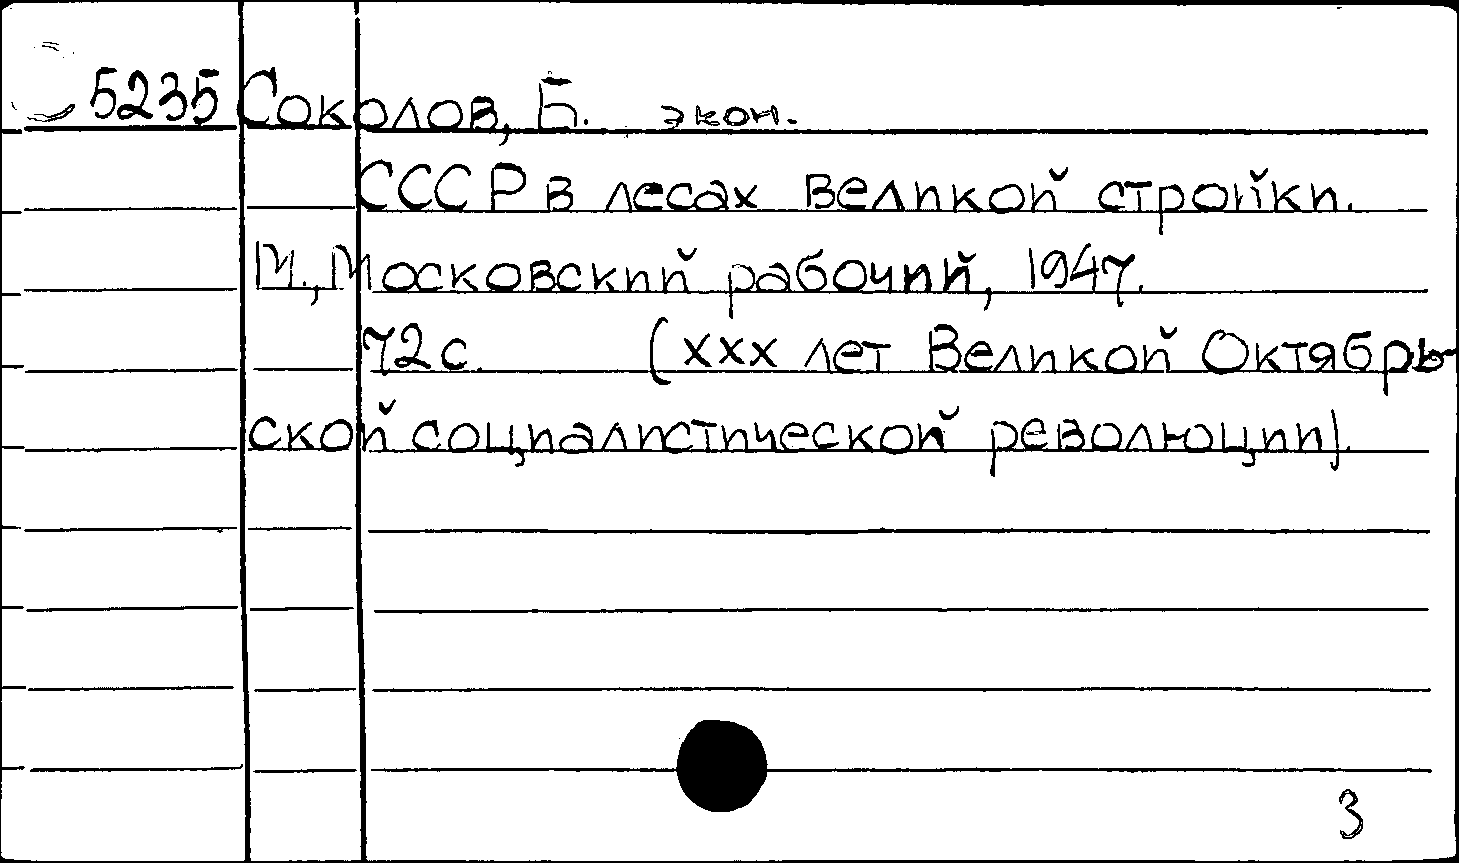 5235 Соколов, Б. экон.
СССР в лесах великой стройки.
М., Московский рабочий, 1947.
72 с. (ХХХ лет Великой Октябрь-
ской социалистической революции).
3